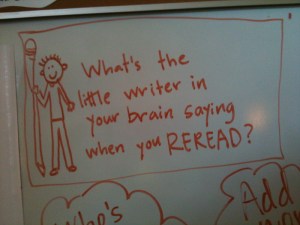 What's the
little writer in
your brain saying
when you REREAD?
Who's
Add